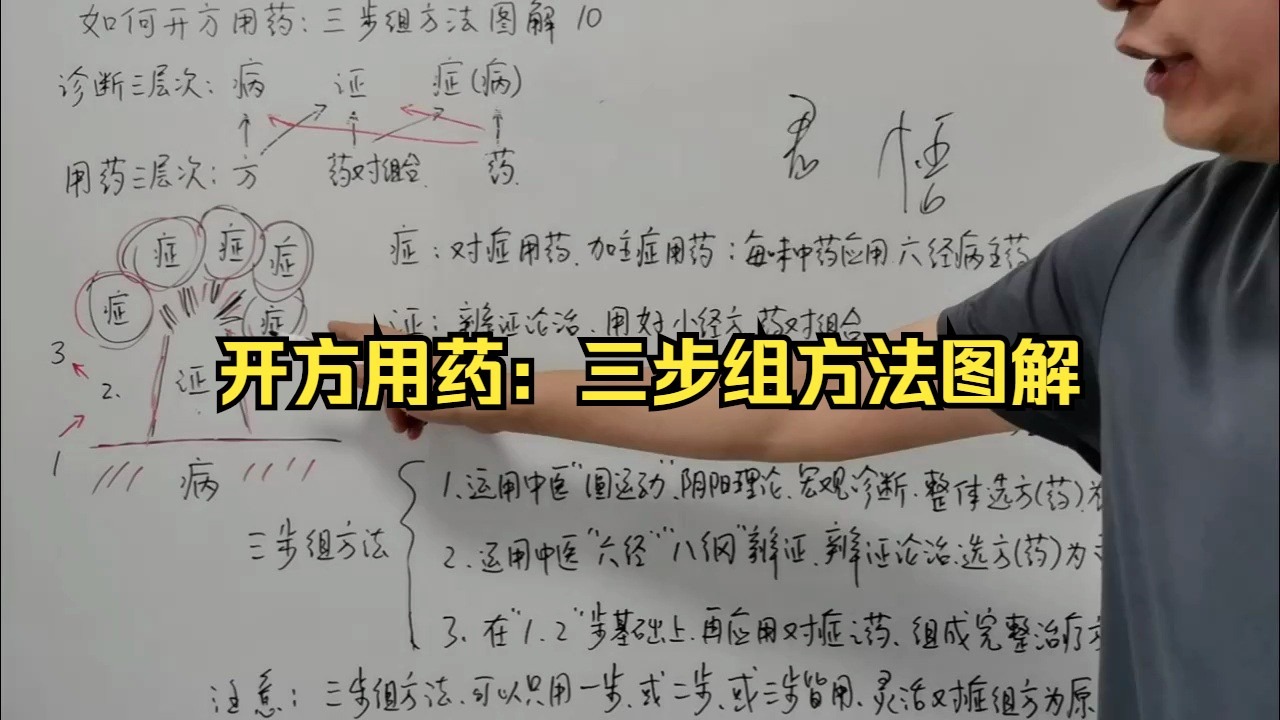 如何开方用药:三步组方法图解 10
诊断三层次: 病 证 症(病)
用药三层次: 方 药对组合. 药.
君 悟
症 症 症 症 症
症:对症用药、加主症用药:每味中药应用六经病主药
证:辨证论治、用好小经方、药对组合
开方用药:三步组方法图解
3
2. 证
1
病
三步组方法
1、运用中医"圆运动"、阴阳理论、宏观诊断、整体选方(药)
2、运用中医"六经""八纲"辨证、辨证论治、选方(药)为
3、在"1、2"步基础上、再应用对症之药、组成完整治疗
注意: 三步组方法、可以只用一步、或二步、或三步皆用、灵活对症组方为原